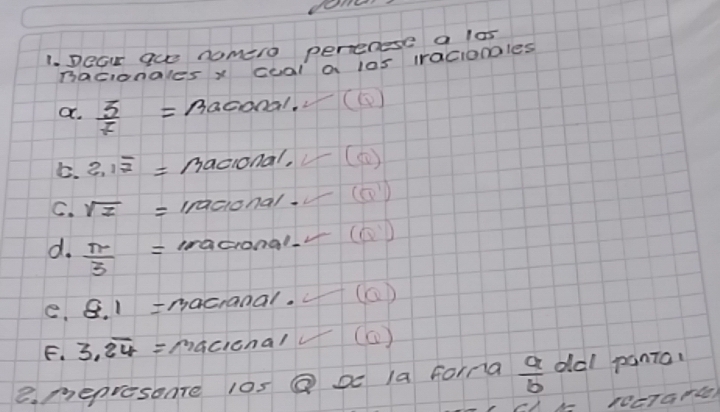 1. Decir que nomero perenese a los
Racionales y cual a los iracionales
a. 5/7 = Raconal. ✓ (Q)
b. 2,1̅7̅ = Racional. ✓ (Q)
c. √7 = iracional. ✓ (Q')
d. π/3 = iracional. ✓ (Q')
e. 8.1 = Racianal. ✓ (Q)
F. 3,2̅4̅ = Racional ✓ (Q)
2. Represente los Q De la Forma a/b dal punto 1